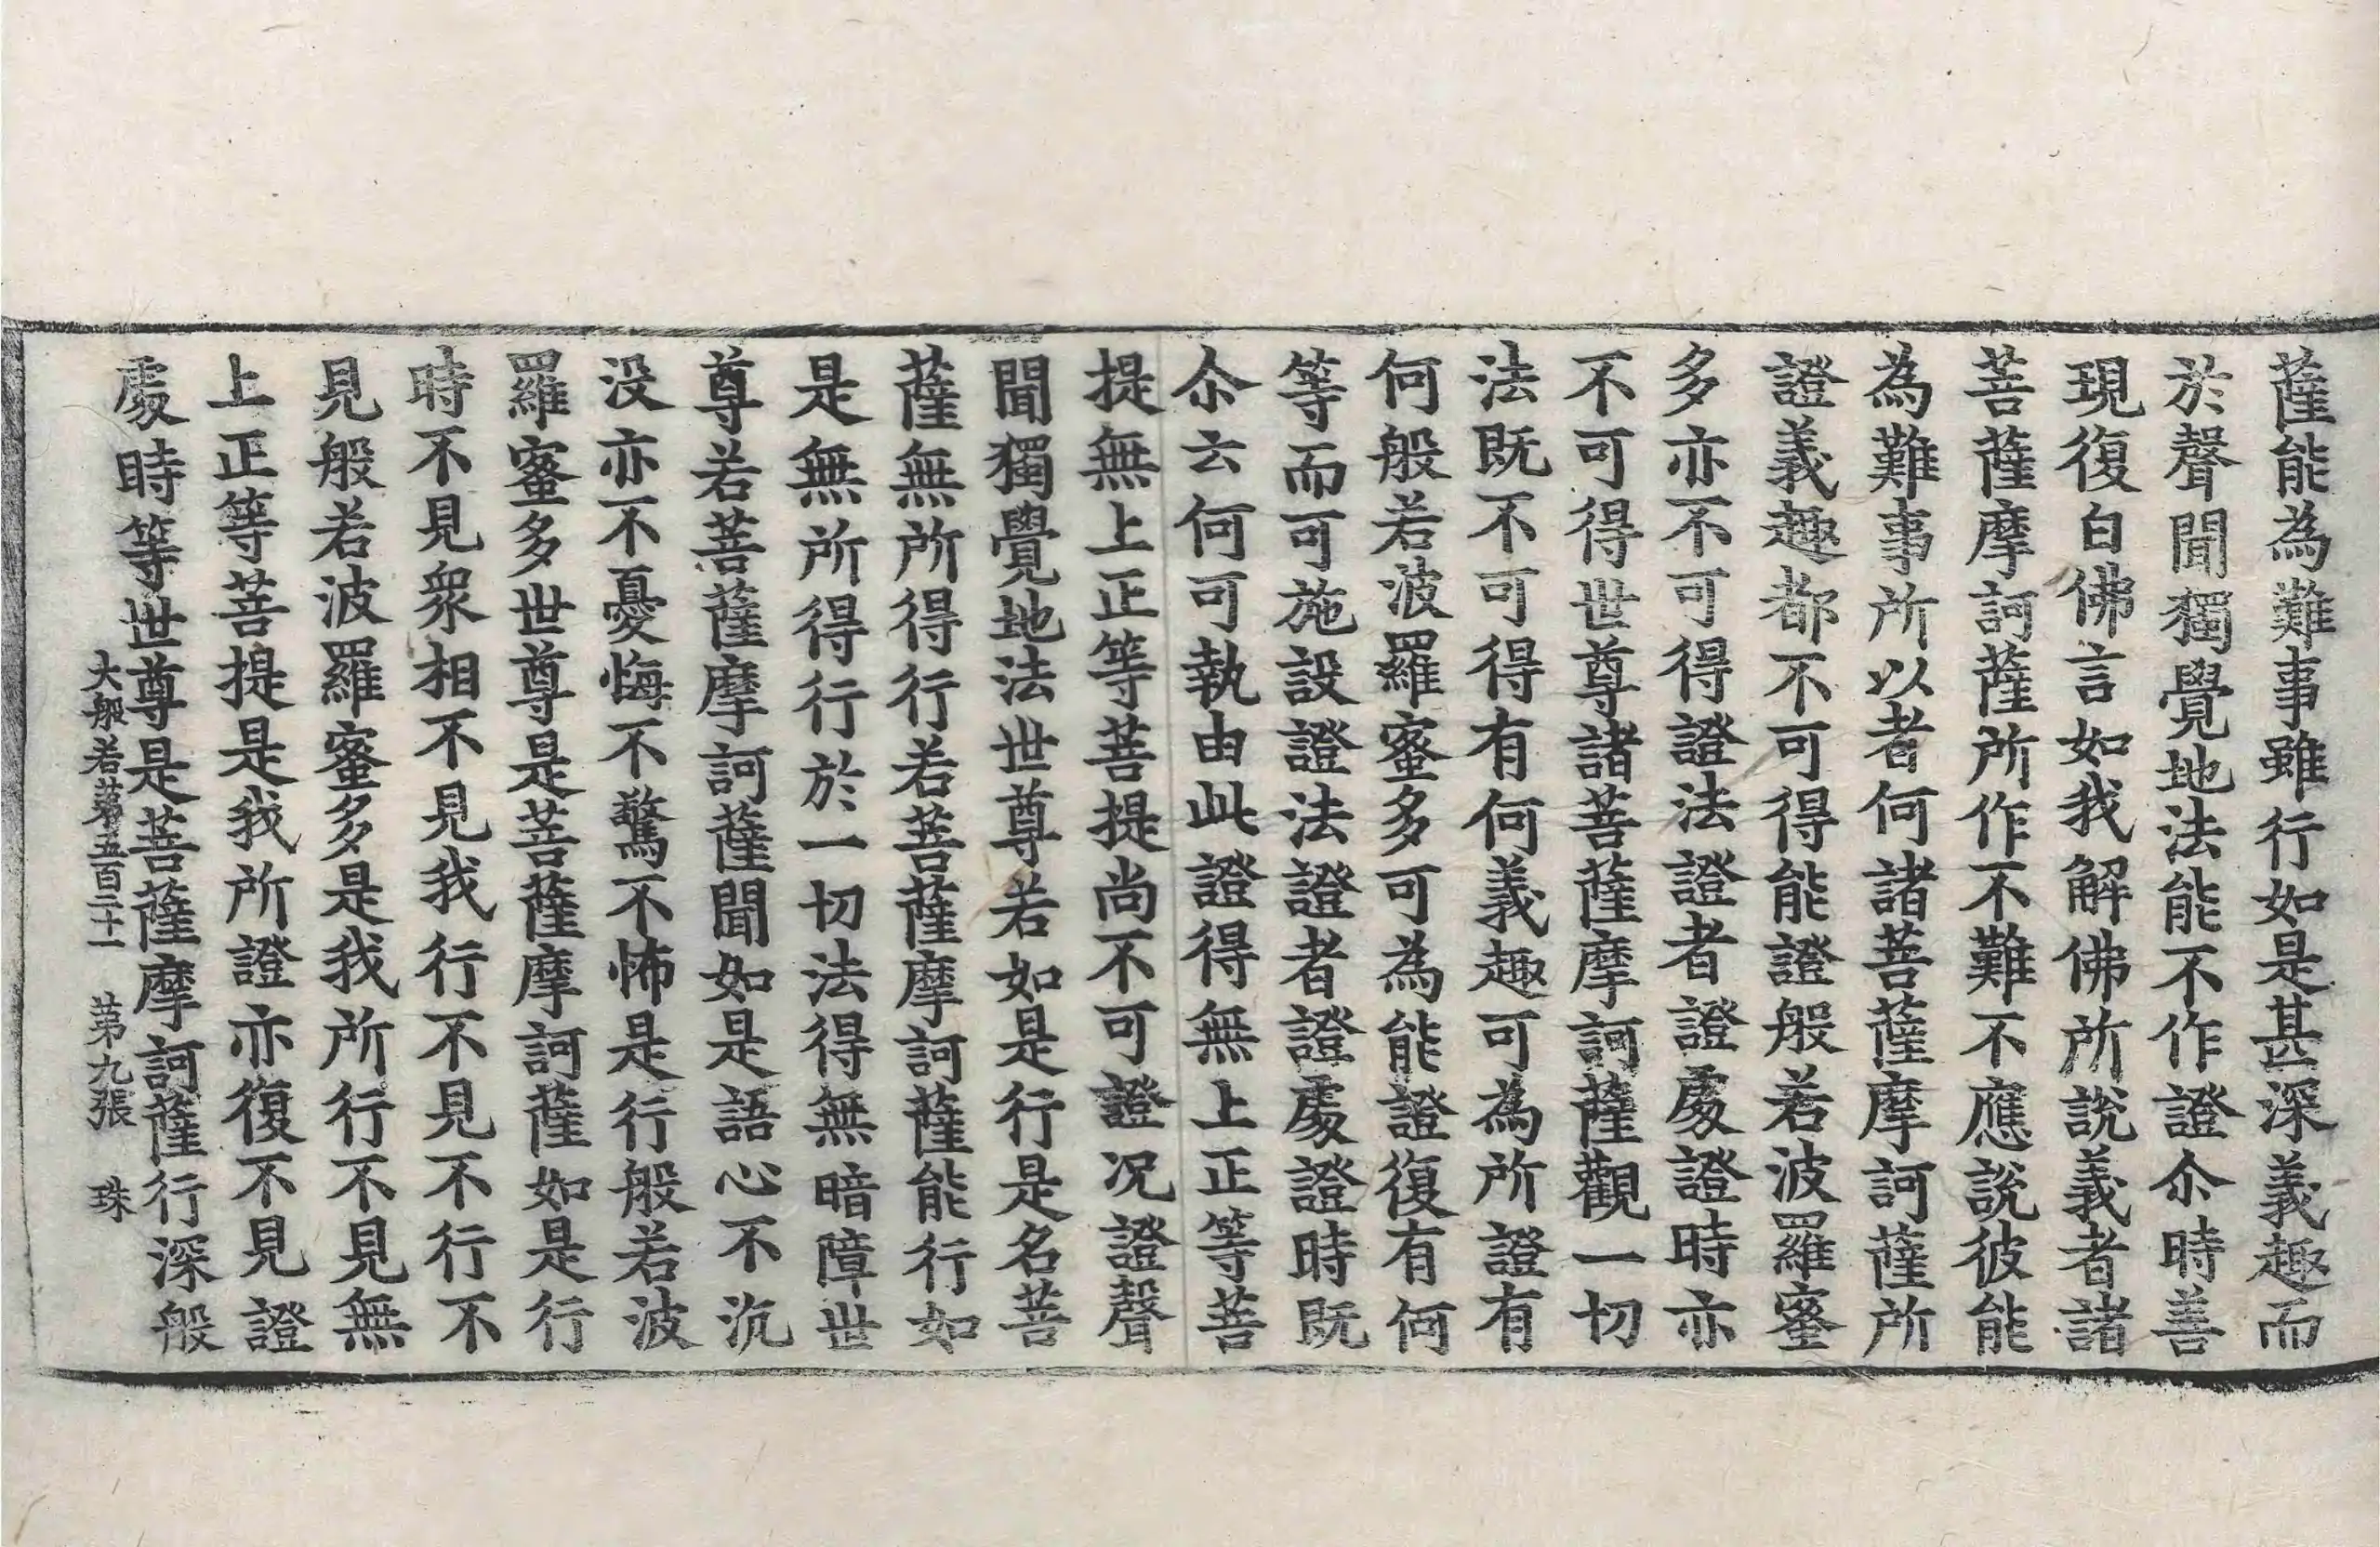 薩能為難事雖行如是甚深義趣而
於聲聞獨覺地法能不作證尒時善
現復白佛言如我解佛所說義者諸
菩薩摩訶薩所作不難不應說彼能
為難事所以者何諸菩薩摩訶薩所
證義趣都不可得能證般若波羅蜜
多亦不可得證法證者證處證時亦
不可得世尊諸菩薩摩訶薩觀一切
法既不可得有何義趣可為所證有
何般若波羅蜜多可為能證復有何
等而可施設證法證者證處證時既
尒云何可執由此證得無上正等菩
提無上正等菩提尚不可證況證聲
聞獨覺地法世尊若如是行是名菩
薩無所得行若菩薩摩訶薩能行如
是無所得行於一切法得無暗障世
尊若菩薩摩訶薩聞如是語心不沉
没亦不憂悔不驚不怖是行般若波
羅蜜多世尊是菩薩摩訶薩如是行
時不見衆相不見我行不見不行不
見般若波羅蜜多是我所行不見無
上正等菩提是我所證亦復不見證
處時等世尊是菩薩摩訶薩行深般
大般若第五百二十一 第九張 珠